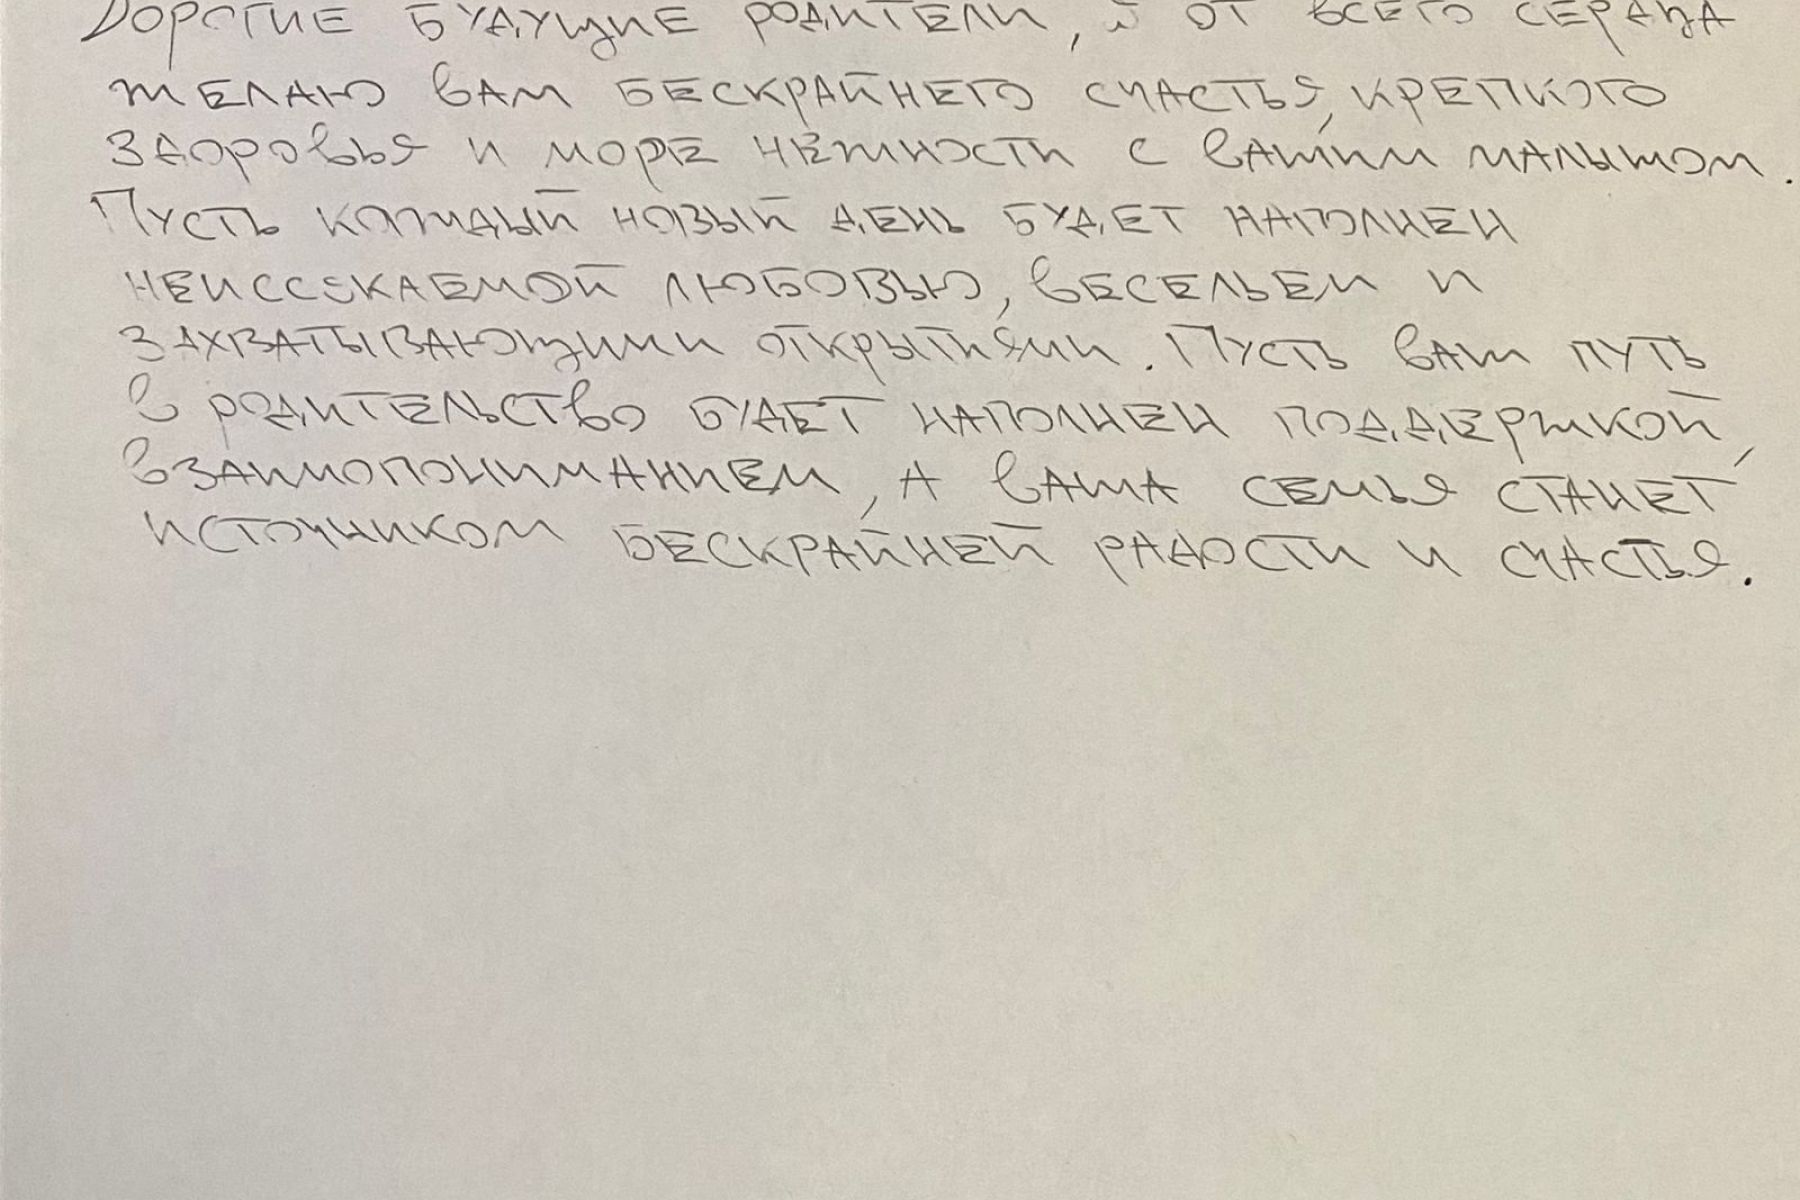 Дорогие будущие родители, я от всего сердца
желаю вам бескрайнего счастья, крепкого
здоровья и море нежности с вашим малышом.
Пусть каждый новый день будет наполнен
неиссякаемой любовью, весельем и
захватывающими открытиями. Пусть ваш путь
в родительство будет наполнен поддержкой,
взаимопониманием, а ваша семья станет
источником бескрайней радости и счастья.